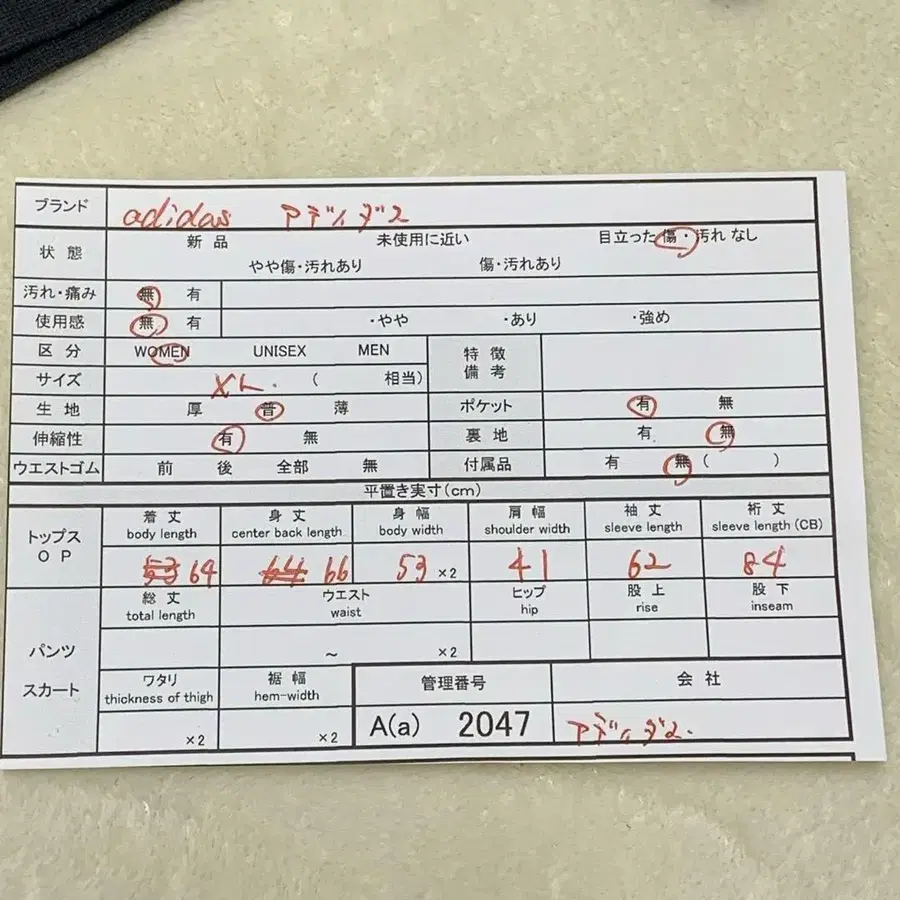 ブランド adidas アディダス
状態 新品 未使用に近い 目立った傷・汚れなし
やや傷・汚れあり 傷・汚れあり
汚れ・痛み 無 有
使用感 無 有 ・やや ・あり ・強め
区分 WOMEN UNISEX MEN 特徴
備考
サイズ XL. ( 相当)
生地 厚 普 薄 ポケット 有 無
伸縮性 有 無 裏地 有 無
ウエストゴム 前 後 全部 無 付属品 有 無 ( )
平置き実寸(cm)
トップス
OP
着丈 身丈 身幅 肩幅 袖丈 裄丈
body length center back length body width shoulder width sleeve length sleeve length (CB)
53 64 64 66 53 ×2 41 62 84
パンツ
スカート
総丈 ウエスト ヒップ 股上 股下
total length waist hip rise inseam
~ ×2
ワタリ 裾幅 管理番号 会社
thickness of thigh hem-width
×2 ×2 A(a) 2047 アディダス.